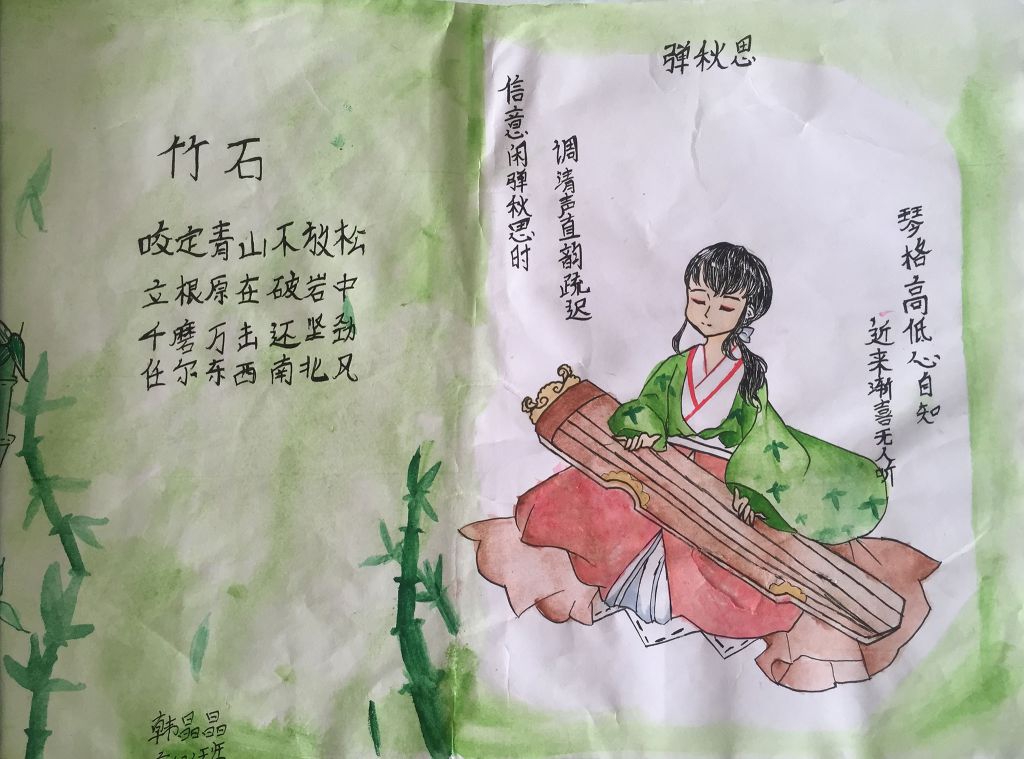 竹石
咬定青山不放松
立根原在破岩中
千磨万击还坚劲
任尔东西南北风
韩晶晶
弹秋思
信意闲弹秋思时
调清声直韵疏迟
近来渐喜无人听
琴格高低心自知